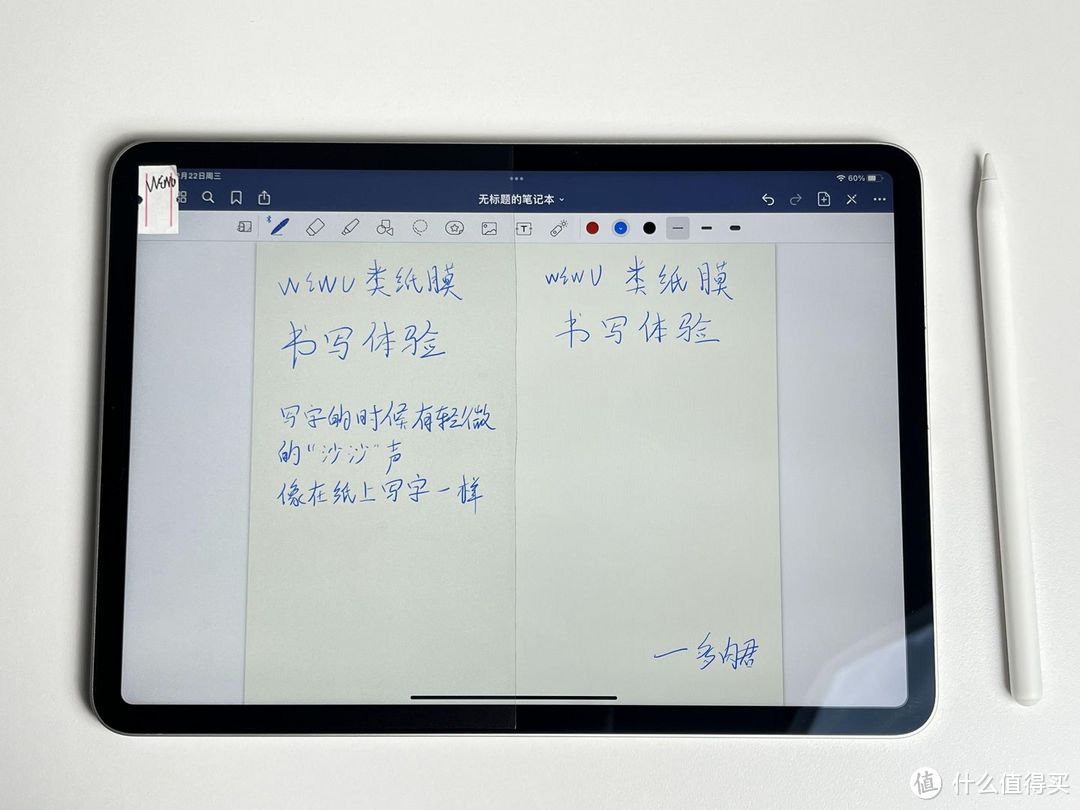 WEWU
月22日周三
60%
无标题的笔记本
T
WEWU 类纸膜
书写体验
写字的时候有轻微
的“沙沙”声
像在纸上写字一样
WEWU 类纸膜
书写体验
值 什么值得买